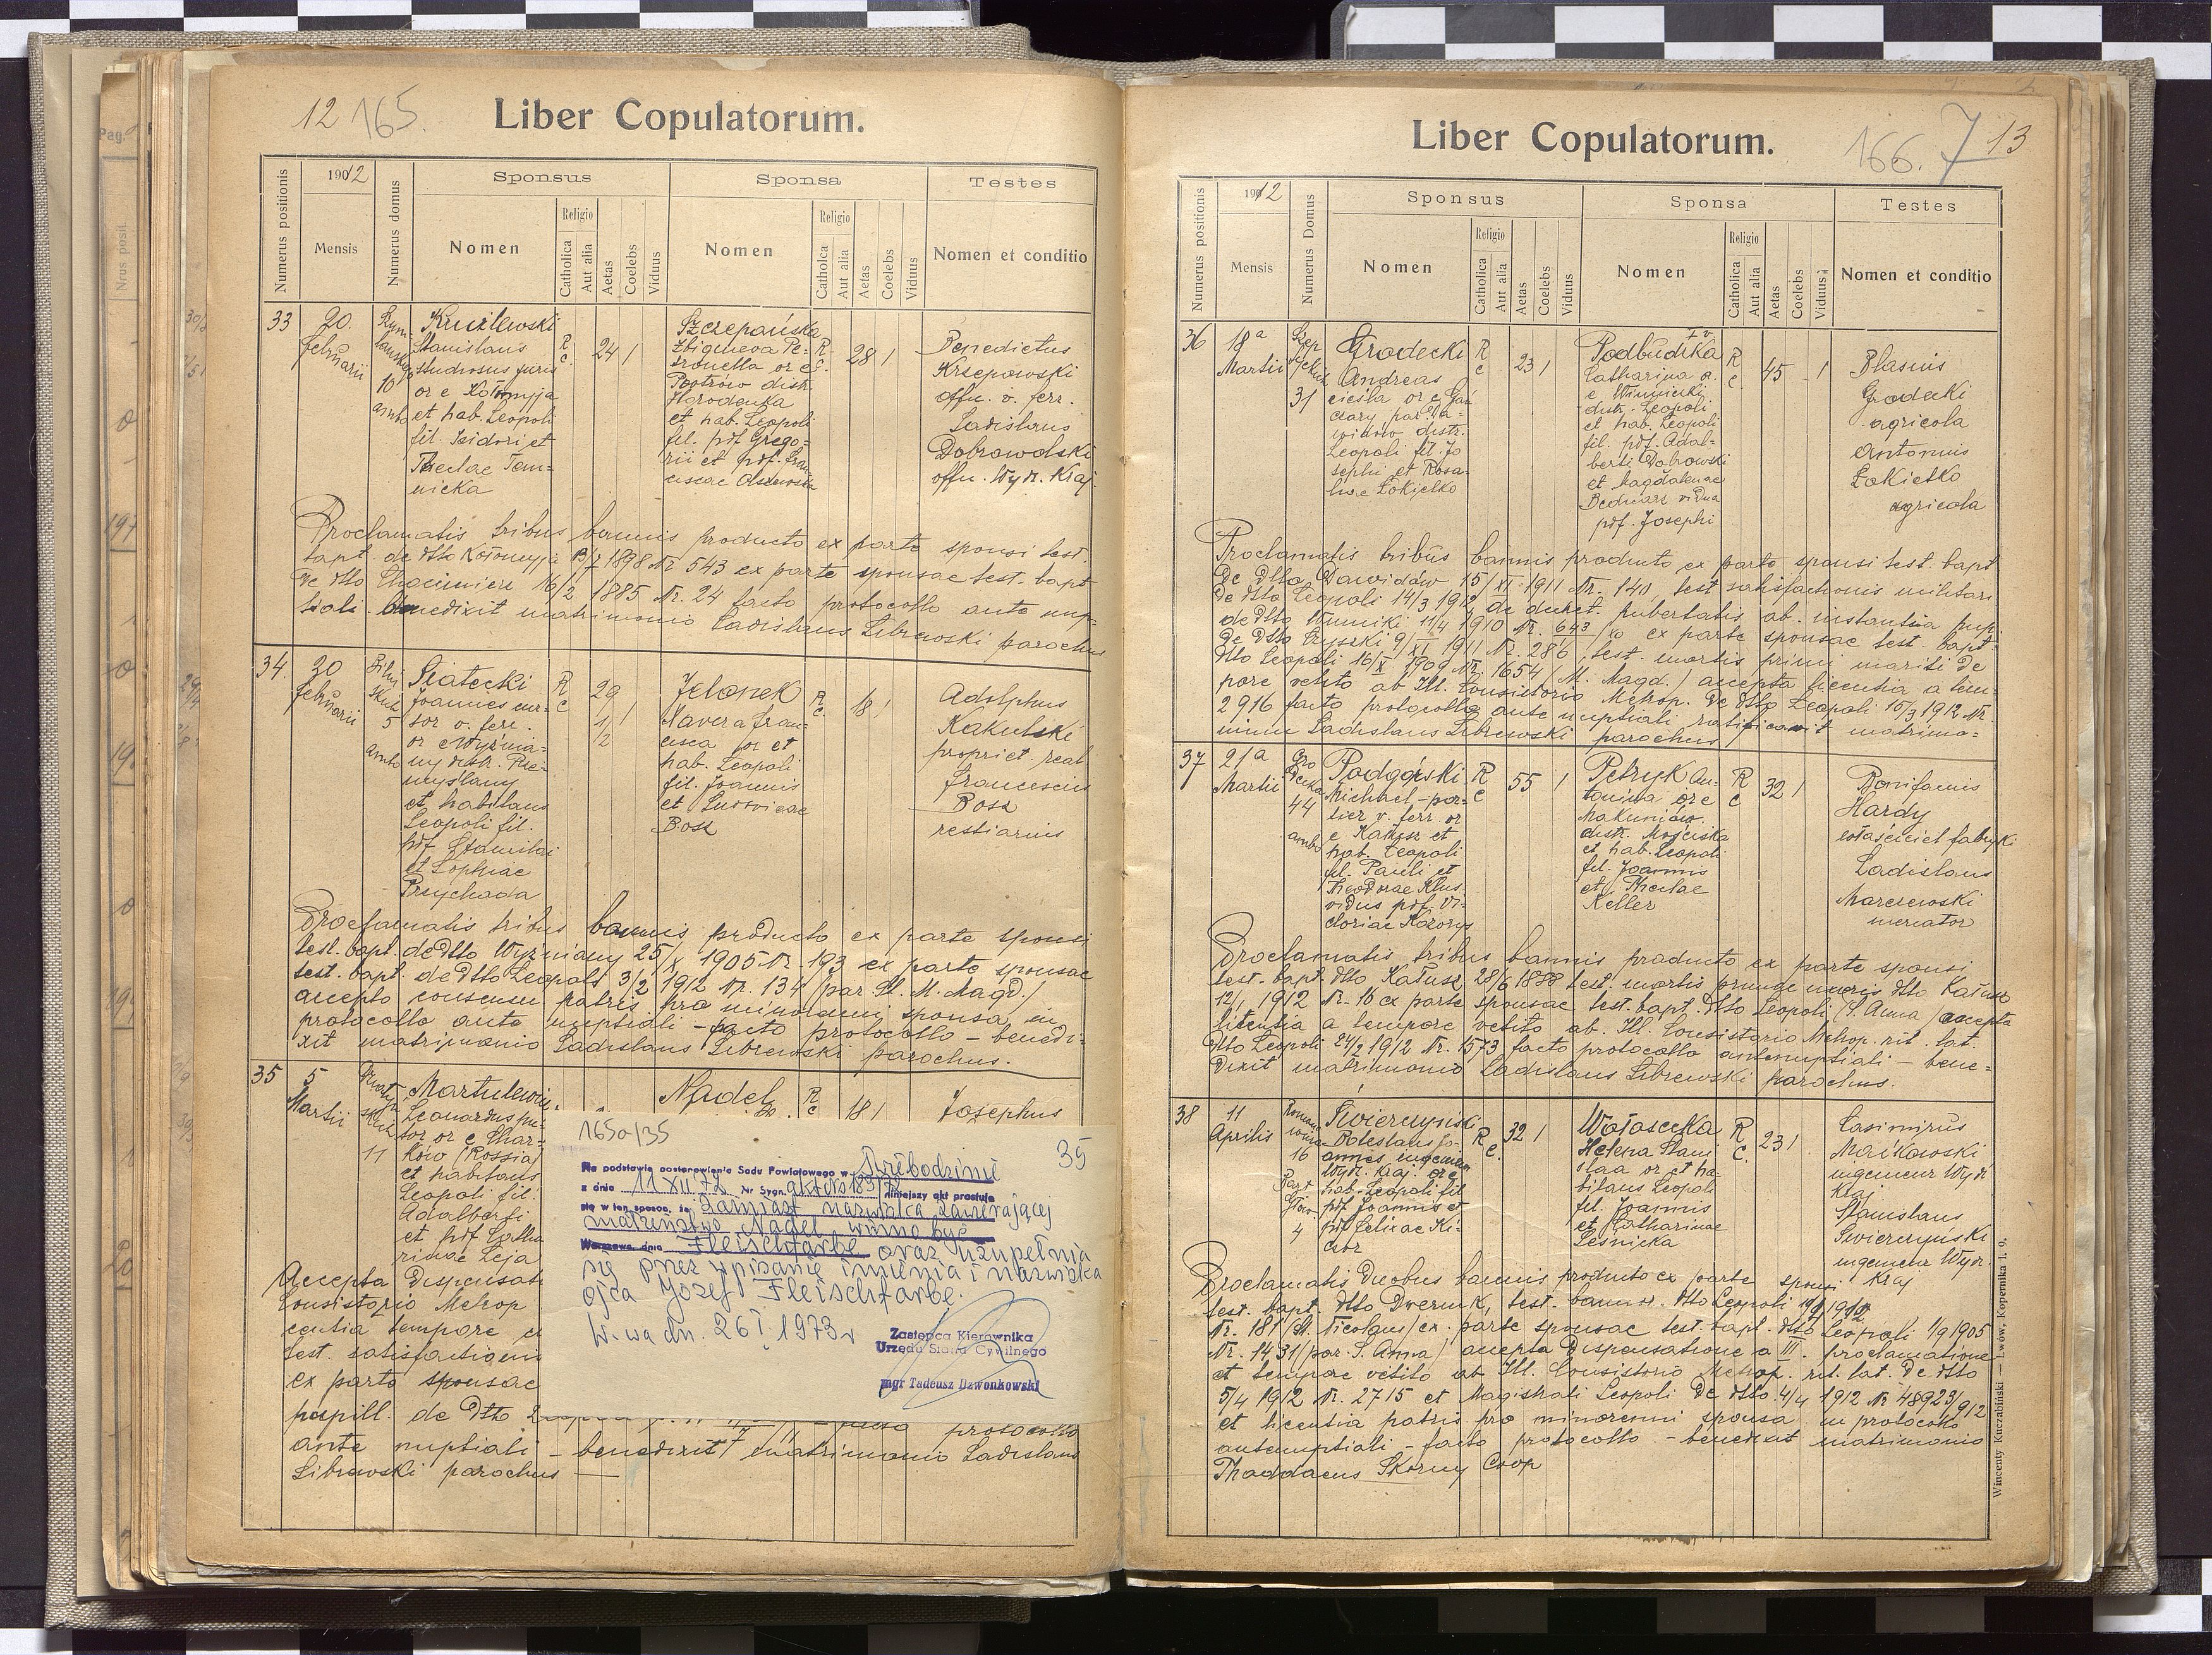 12 165.
Liber Copulatorum.
Numerus positionis
1912
Mensis
Numerus domus
Sponsus
Nomen
Religio
Catholica
Aut alia
Aetas
Coelebs
Viduus
Sponsa
Nomen
Religio
Catholica
Aut alia
Aetas
Coelebs
Viduus
Testes
Nomen et conditio
33
20.
Februarii
10
ambo
Kruzlewski
Stanislaus
studiosus juris
or e Kołomyja
et hab. Leopoli
fil. Isidori et
Theclae Tem-
nicka
R
c
24 1
Szczepańska
Zbigneva Pe-
tronella or e
Piotrów distr.
Horodenka
et hab. Leopoli
fil. pdf Grego-
rii et pdf. Fran-
ciscae Olszewska
R
c.
28 1
Benedictus
Krzepowski
offn. v. ferr.
Ladislaus
Dobrowolski
offn. Wydz. Kraj.
Proclamatis tribus bannis producto ex parte sponsi test.
bapt. de dtto Kołomyja 13/7 1898 Nr 543 ex parte sponsae test. bapt
de dtto Chocimierz 16/2 1885 Nr. 24 facto protocollo ante nup-
tiali benedixit matrimonio Ladislaus Librewski parochus
34.
20
Februarii
5
ambo
Siatecki
Joannes cur-
sor v. ferr.
or e Wyżnia-
ny distr. Prze-
myślany
et habitans
Leopoli fil.
pdf Stanislai
et Sophiae
Przychoda
R
c
29
1/2
1
Jelonek
Xavera Fran-
cisca or et
hab. Leopoli
fil. Joannis
et Ludovicae
Bosz
R
c.
18 1
Adolphus
Kakulski
propriet. real
Franciscus
Bosz
vestiarius
Proclamatis tribus bannis producto ex parte sponsi
test. bapt. de dtto Wyżniany 25/X 1905 Nr 193 ex parte sponsae
test. bapt. de dtto Leopoli 3/2 1912 Nr. 134 (par St. M. Magd.)
accepto consensu patris pro minorenni sponsa in
protocollo ante nuptiali - facto protocollo - benedi-
xit matrimonio Ladislaus Librewski parochus.
35
5
Martii
11
Martulewicz
Leonardus
or e Char-
ków (Rossia)
et habitans
Leopoli fil.
Adalberti
et pdf Catha
rinae Leja
Nadel
R
c
18 1
Josephus
165a/35
35
Na podstawie postanowienia Sądu Powiatowego w Trzebodzinie
z dnia 11 XII 72 Nr Sygn. akt Ns 183/72 niniejszy akt prostuje
się w ten sposób, że zamiast nazwiska zawierającej
małżeństwo Nadel winno być
Warszawa, dnia Fleischfarbe oraz uzupełnia
się przez wpisanie imienia i nazwiska
ojca Józef Fleischfarbe.
W-wa dn. 26 I 1973 r
Zastępca Kierownika
Urzędu Stanu Cywilnego
mgr Tadeusz Dzwonkowski
Accepta dispensati
Consistorio Metrop
centia tempore
test. satisfactionis
ex parte sponsae
pupill. de dtto protocollo
ante nuptiali - benedixit matrimonio Ladislaus
Librewski parochus
Liber Copulatorum.
166. 7 13
Numerus positionis
1912
Mensis
Numerus Domus
Sponsus
Nomen
Religio
Catholica
Aut alia
Aetas
Coelebs
Viduus
Sponsa
Nomen
Religio
Catholica
Aut alia
Aetas
Coelebs
Viduus
Testes
Nomen et conditio
36
18a
Martii
31
Grodecki
Andreas
or e Gań
czary par Da-
widów distr.
Leopoli fil. Jo
sephi et Rosa-
liae Łokietko
R
c
23 1
Podbudka
Catharina or.
e Winniki
distr. Leopoli
et hab. Leopoli
fil. pdf. Adal-
berti Dobrowski
et Magdalenae
Bednarz vidua
pdf. Josephi
R
c.
45 1
Blasius
Grodecki
agricola
Antonius
Łokietko
agricola
Proclamatis tribus bannis producto ex parte sponsi test. bapt
de dtto Dawidów 15/XI 1911 Nr. 140, test satisfactionis militari
de dtto Leopoli 14/3 1912, de decret. pubertatis ab. instantia pupi.
de dtto Winniki 11/4 1910 Nr. 643/10 ex parte sponsae test. bapt.
de dtto 9/XI 1911 Nr. 286, test. mortis primi mariti de
dtto Leopoli 16/X 1909 Nr. 1654 (M. Magd.) accepta licentia a tem-
pore vetito ab Ill. Consistorio Metrop. de dtto Leopoli 15/3 1912 Nr.
2916 facto protocollo ante nuptiali ratificavit matrimo-
nium Ladislaus Librewski parochus
37
21a
Martii
Gro
decka
44
ambo
Podgórski
Michael - por-
tier v. ferr. or
e Kałusz et
hab. Leopoli
fil. Pauli et
Theodorae Klus
vidus pdf. Vi-
ctoriae Kozorys
R
c
55 1
Petryk An-
tonina or e
Makuniów.
distr. Mościska
et hab. Leopoli
fil. Joannis
et Theclae
Keller
R
c
32 1
Bonifacius
Hardy
właściciel fabryki
Ladislaus
Marczewski
mercator
Proclamatis tribus bannis producto ex parte sponsi
test. bapt. dtto Kałusz 28/6 1888 test. mortis primae uxoris dtto Kałusz
12/1 1912 Nr. 10 ex parte sponsae test. bapt. dtto Leopoli (S. Anna) accepta
licentia a tempore vetito ab. Ill. Consistorio Metrop. rit. lat.
dtto Leopoli 24/2 1912 Nr. 1573 facto protocollo antenuptiali - bene-
dixit matrimonio Ladislaus Librewski parochus.
38
11
Aprilis
16
4
Świerczyński
Boleslaus Jo-
annes ingenieur
Wydz. Kraj. or e
hab. Leopoli fil
pdf Joannis et
pdf Felicae Ki-
cior
R
c.
32 1
Wołoszecka
Helena Stani
slaa or et ha-
bitans Leopoli
fil. Joannis
et Catharinae
Leśnicka
R
c.
23 1
Casimirus
Maćkowski
ingenieur Wydz
Kraj
Stanislaus
Świerczyński
ingenieur Wydz.
Kraj
Proclamatis duobus bannis producto ex parte sponsi
test. bapt. dtto Dwernik, test. bannor. dtto Leopoli 1912
Nr. 181 (St. Nicolaus) ex. parte sponsae test. bapt. dtto Leopoli 1/9 1905
Nr. 1431 (par. S. Anna) accepta dispensatione a III. proclamatione
et tempore vetito ab Ill. Consistorio Metrop. rit. lat. de dtto
5/4 1912 Nr. 2715 et Magistrali Leopoli de dtto. 4/4 1912 Nr 48923/912
et licentia patris pro minorenni sponsa in protocollo
antenuptiali - facto protocollo - benedixit matrimonio
Thaddaeus Skorny Coop
Wincenty Kuczabiński — Lwów, Kopernika l. 9.